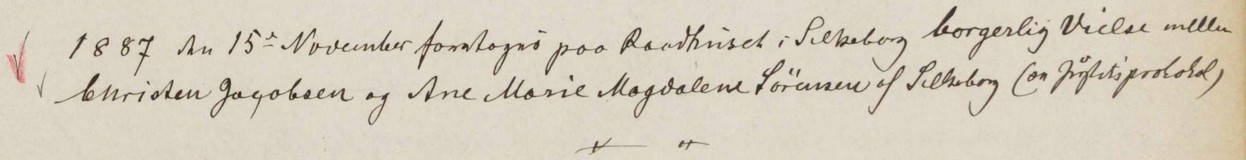 1887 den 15de November foretoges paa Raadhuset i Silkeborg borgerlig Vielse mellem
Christen Jacobsen og Ane Marie Magdalene Sørensen af Silkeborg